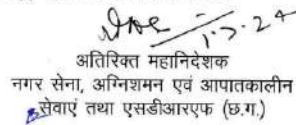 1.7.24
अतिरिक्त महानिदेशक
नगर सेना, अग्निशमन एवं आपातकालीन
सेवाएं तथा एसडीआरएफ (छ.ग.)